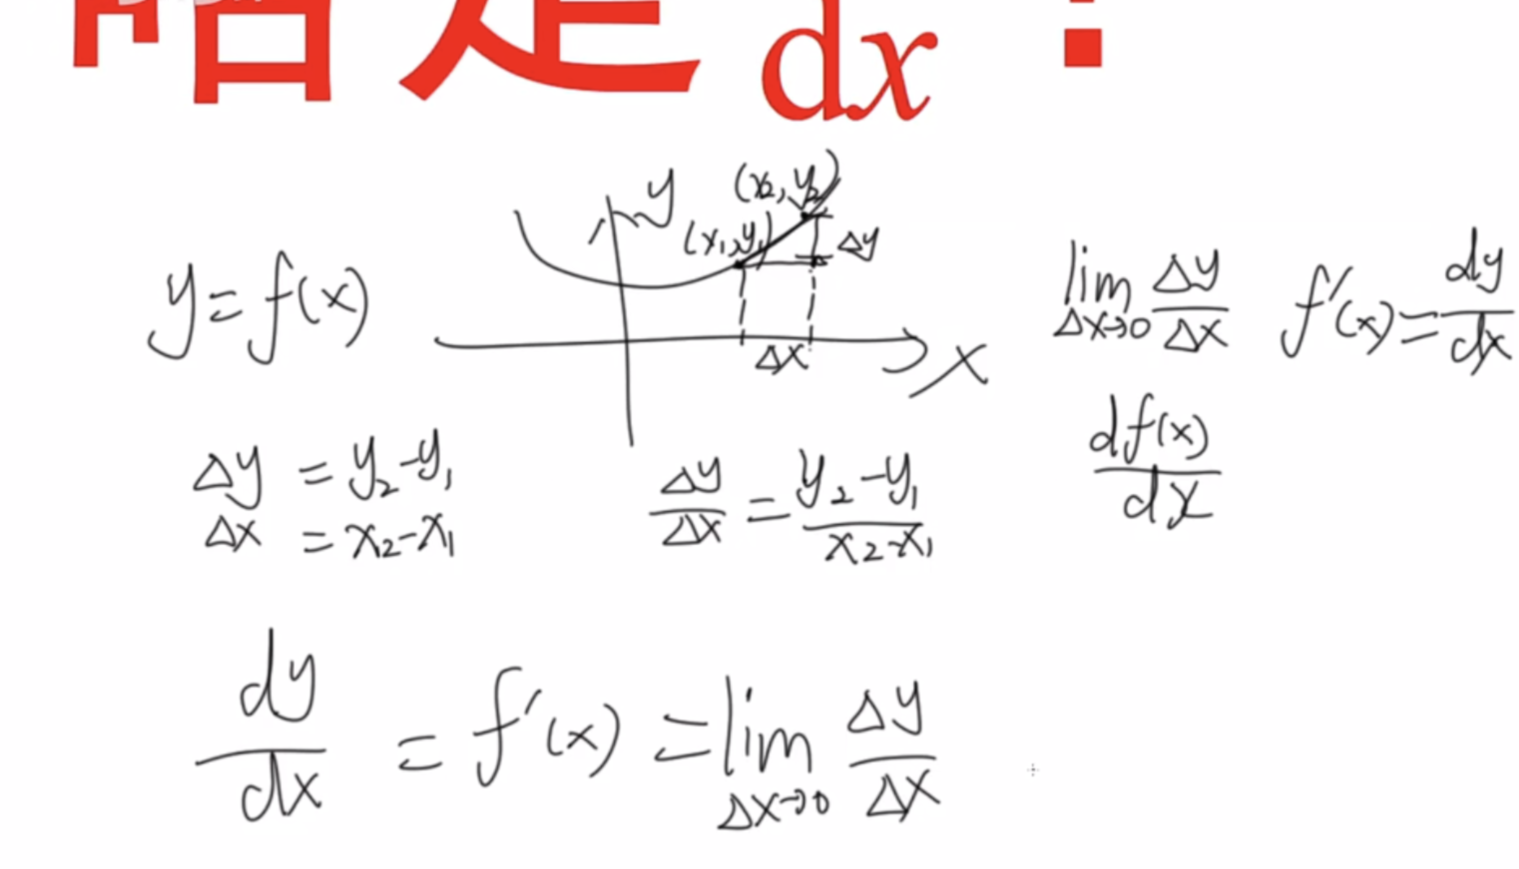 啥是 dx ?
y
(x₂, y₂)
(x₁, y₁)
Δy
Δx
x
y = f(x)
lim Δx→0 Δy/Δx
f'(x) = dy/dx
df(x)/dx
Δy = y₂ - y₁
Δx = x₂ - x₁
Δy/Δx = (y₂ - y₁)/(x₂ - x₁)
dy/dx = f'(x) = lim Δx→0 Δy/Δx